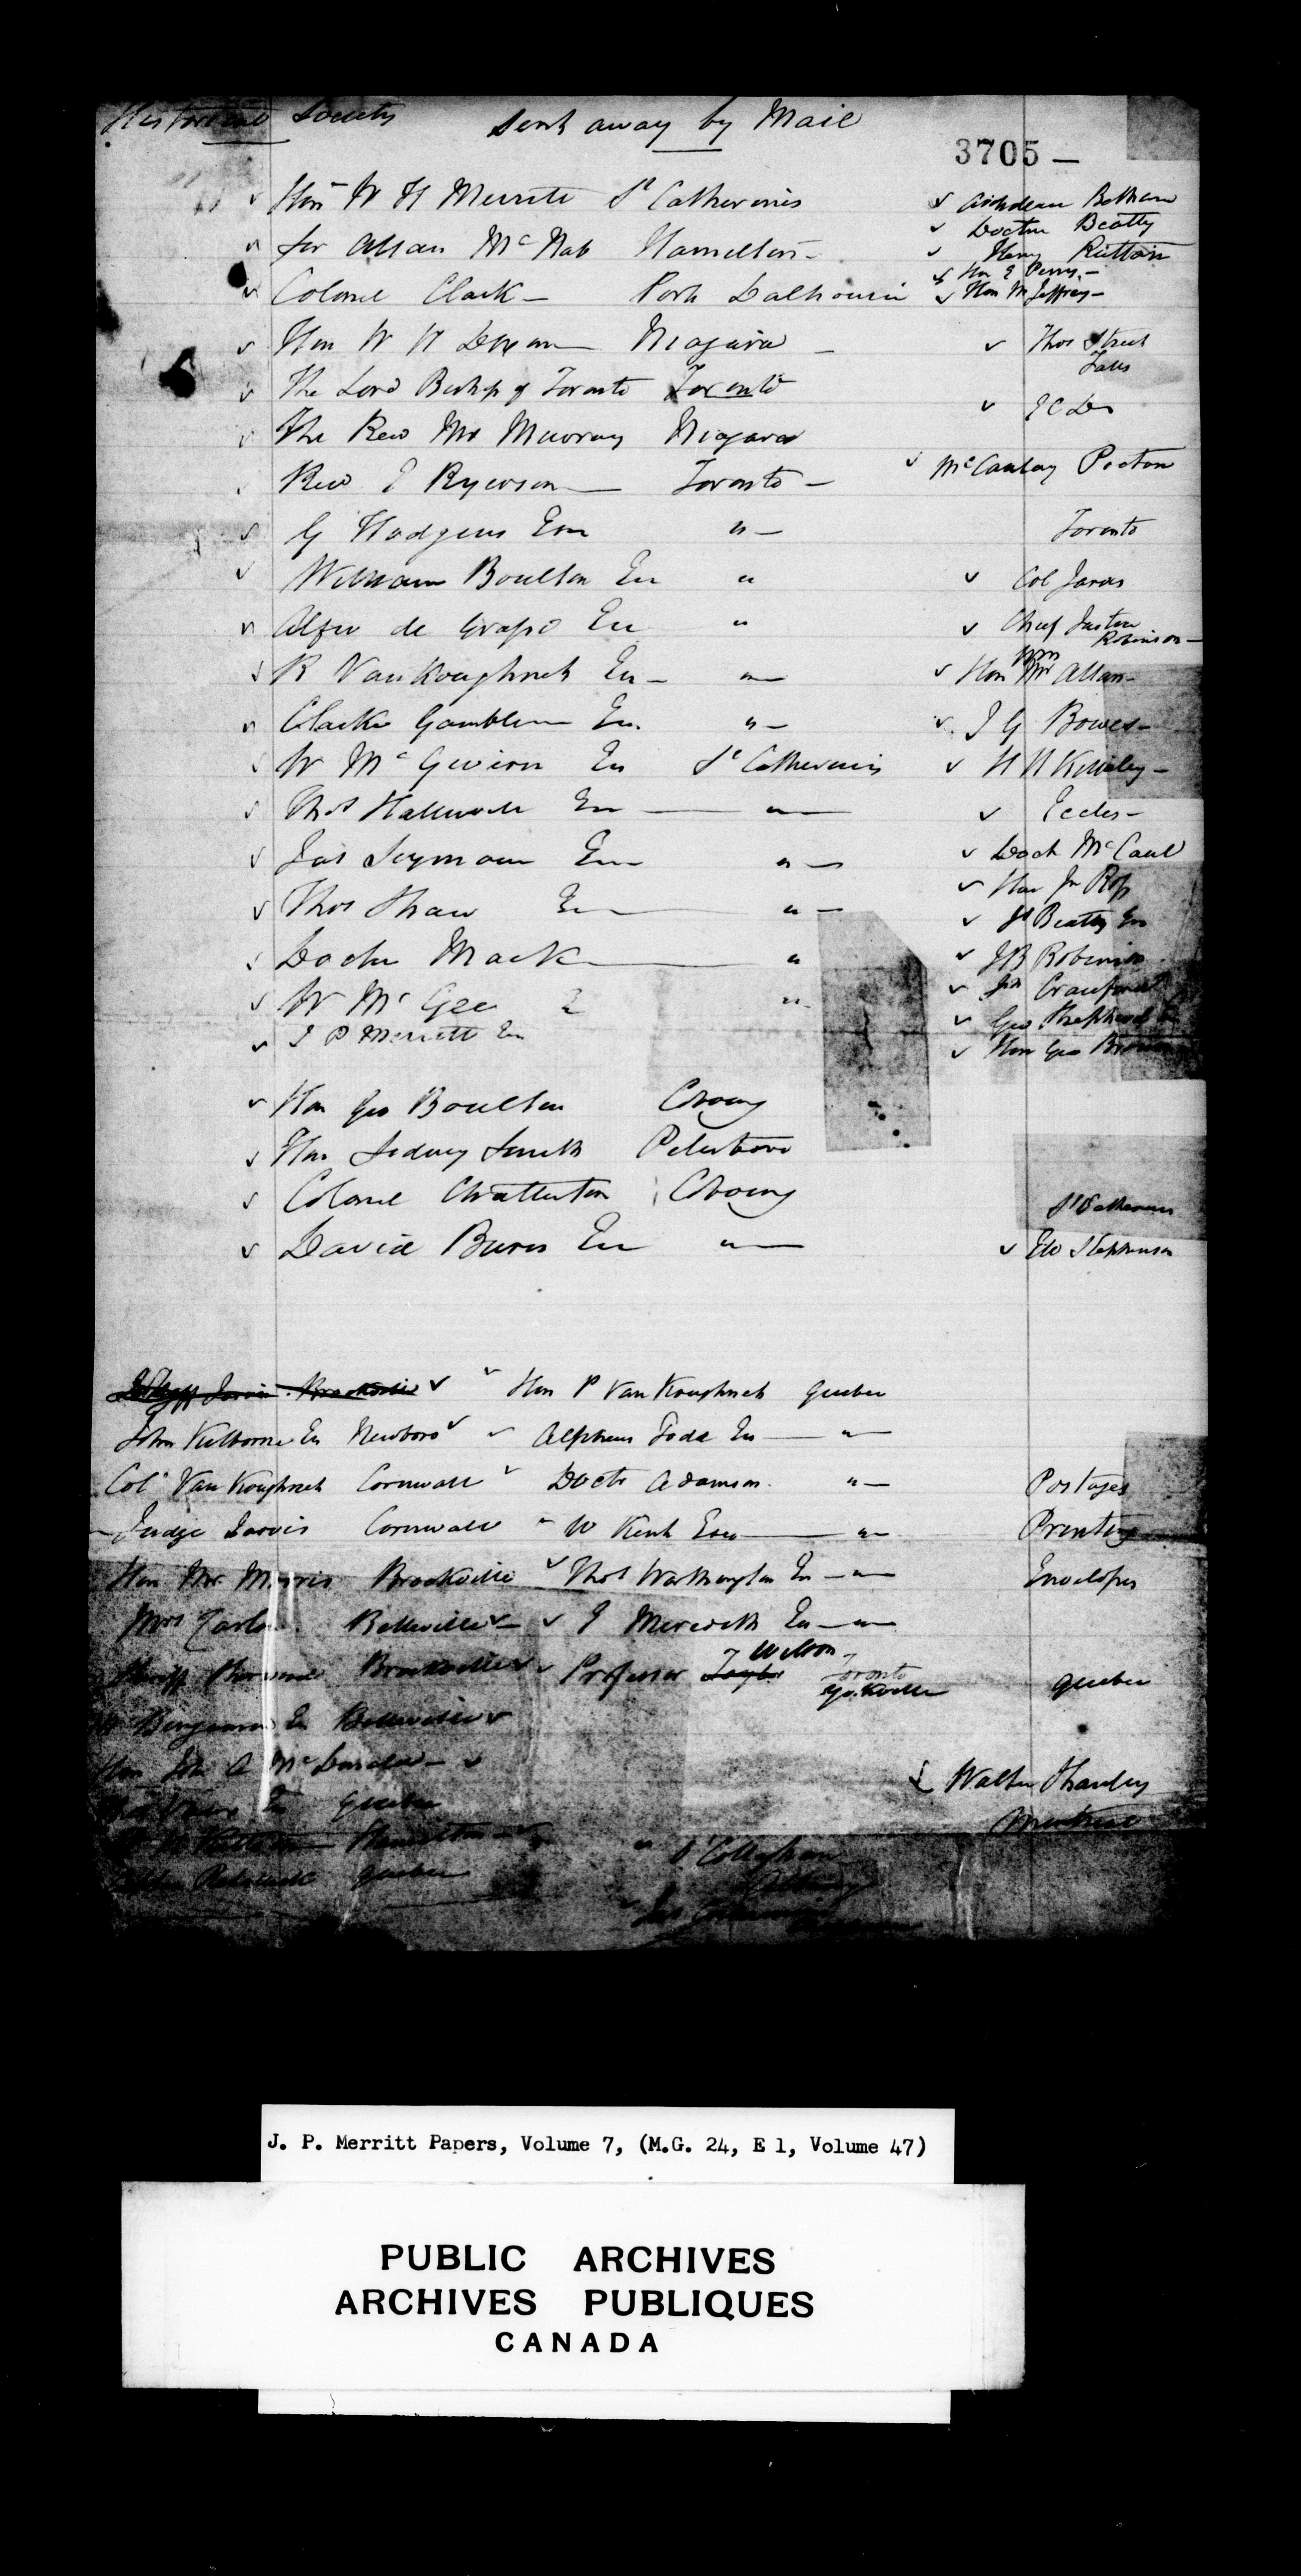 Historical Society Sent away by Mail
3705 —
✓ Hon W H Merritt St Catherines
✓ Sir Allan McNab Hamilton —
✓ Colonel Clark — Port Dalhousie
✓ Hon W H Niagara —
✓ The Lord Bishop of Toronto Toronto
✓ The Rev Mr Murray Niagara
Rev E Ryerson — Toronto —
✓ G Hodgins Esq " —
✓ William Boulton Esq "
✓ de Grassi Esq "
✓ R VanKoughnet Esq — " —
✓ Clarke Gamble — Esq. " —
✓ W McGivern Esq St Catherines
✓ Thos Esq — " —
✓ Jas Seymour Esq " —
✓ Thos Shaw Esq — " —
✓ Doctor Mack — "
✓ W McGee "
✓ J P Merritt Esq
✓ Hon Geo Boulton Cobourg
✓ Hon Sidney Smith Peterboro
✓ Colonel Chatterton Cobourg
✓ David Burn Esq " —
✓ Archdeacon Bethune
✓ Doctor Beatty
✓ Henry Ruttan
✓ Hon E Perry —
✓ Hon Mr Jeffrey —
✓ Thos Street
Falls
✓
✓ McCaulay Picton
Toronto
✓ Col Jarvis
✓ Chief Justice
Robinson —
✓ Hon Wm Allan —
✓ J G Bowes —
✓ H H Killaly —
✓ Eccles —
✓ Doct McCaul
✓ Hon Jn Ross
✓ Js Beatty Esq
✓ J B Robinson
✓ Jn Crawford
✓ Geo
✓ Hon Geo Brown
St Catherines
✓ Stephenson
Sheriff Jarvis Brockville ✓ ✓ Hon P VanKoughnet Quebec
John Kilborne Esq Newboro ✓ ✓ Alpheus Todd Esq — " —
Col VanKoughnet Cornwall ✓ Doctr Adamson " — Postages
Judge Jarvis Cornwall " W Kent Esq — " — Printing
Hon Mr Morris Brockville ✓ Thos Worthington Esq — " — Envelopes
Belleville ✓ — ✓ E Meredith Esq — " —
Sheriff Sherwood Brockville ✓ ✓ Professor Taylor Wilson, Toronto
Yorkville Quebec
Benjamin Esq Belleville ✓
Hon John A McDonald — ✓
✓ Walter Shanly
Montreal
Esq Quebec
Hamilton — ✓
Quebec
" O'Callaghan
Albany
J. P. Merritt Papers, Volume 7, (M.G. 24, E 1, Volume 47)
PUBLIC ARCHIVES
ARCHIVES PUBLIQUES
CANADA